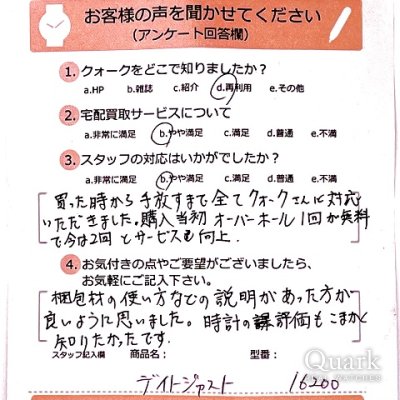 お客様の声を聞かせてください
(アンケート回答欄)
1. クォークをどこで知りましたか？
a.HP b.雑誌 c.紹介 d.再利用 e.その他
2. 宅配買取サービスについて
a.非常に満足 b.やや満足 c.満足 d.普通 e.不満
3. スタッフの対応はいかがでしたか？
a.非常に満足 b.やや満足 c.満足 d.普通 e.不満
買った時から手放すまで全てクォークさんに対応
いただきました。購入当初オーバーホール1回が無料
で今は2回とサービスも向上.
4. お気付きの点やご要望がございましたら、
お気軽にご記入下さい。
梱包材の使い方などの説明があった方が
良いように思いました。時計の評価もこまかく
知りたかったです.
スタッフ記入欄 商品名： 型番：
デイトジャスト 16200
Quark
WATCHES